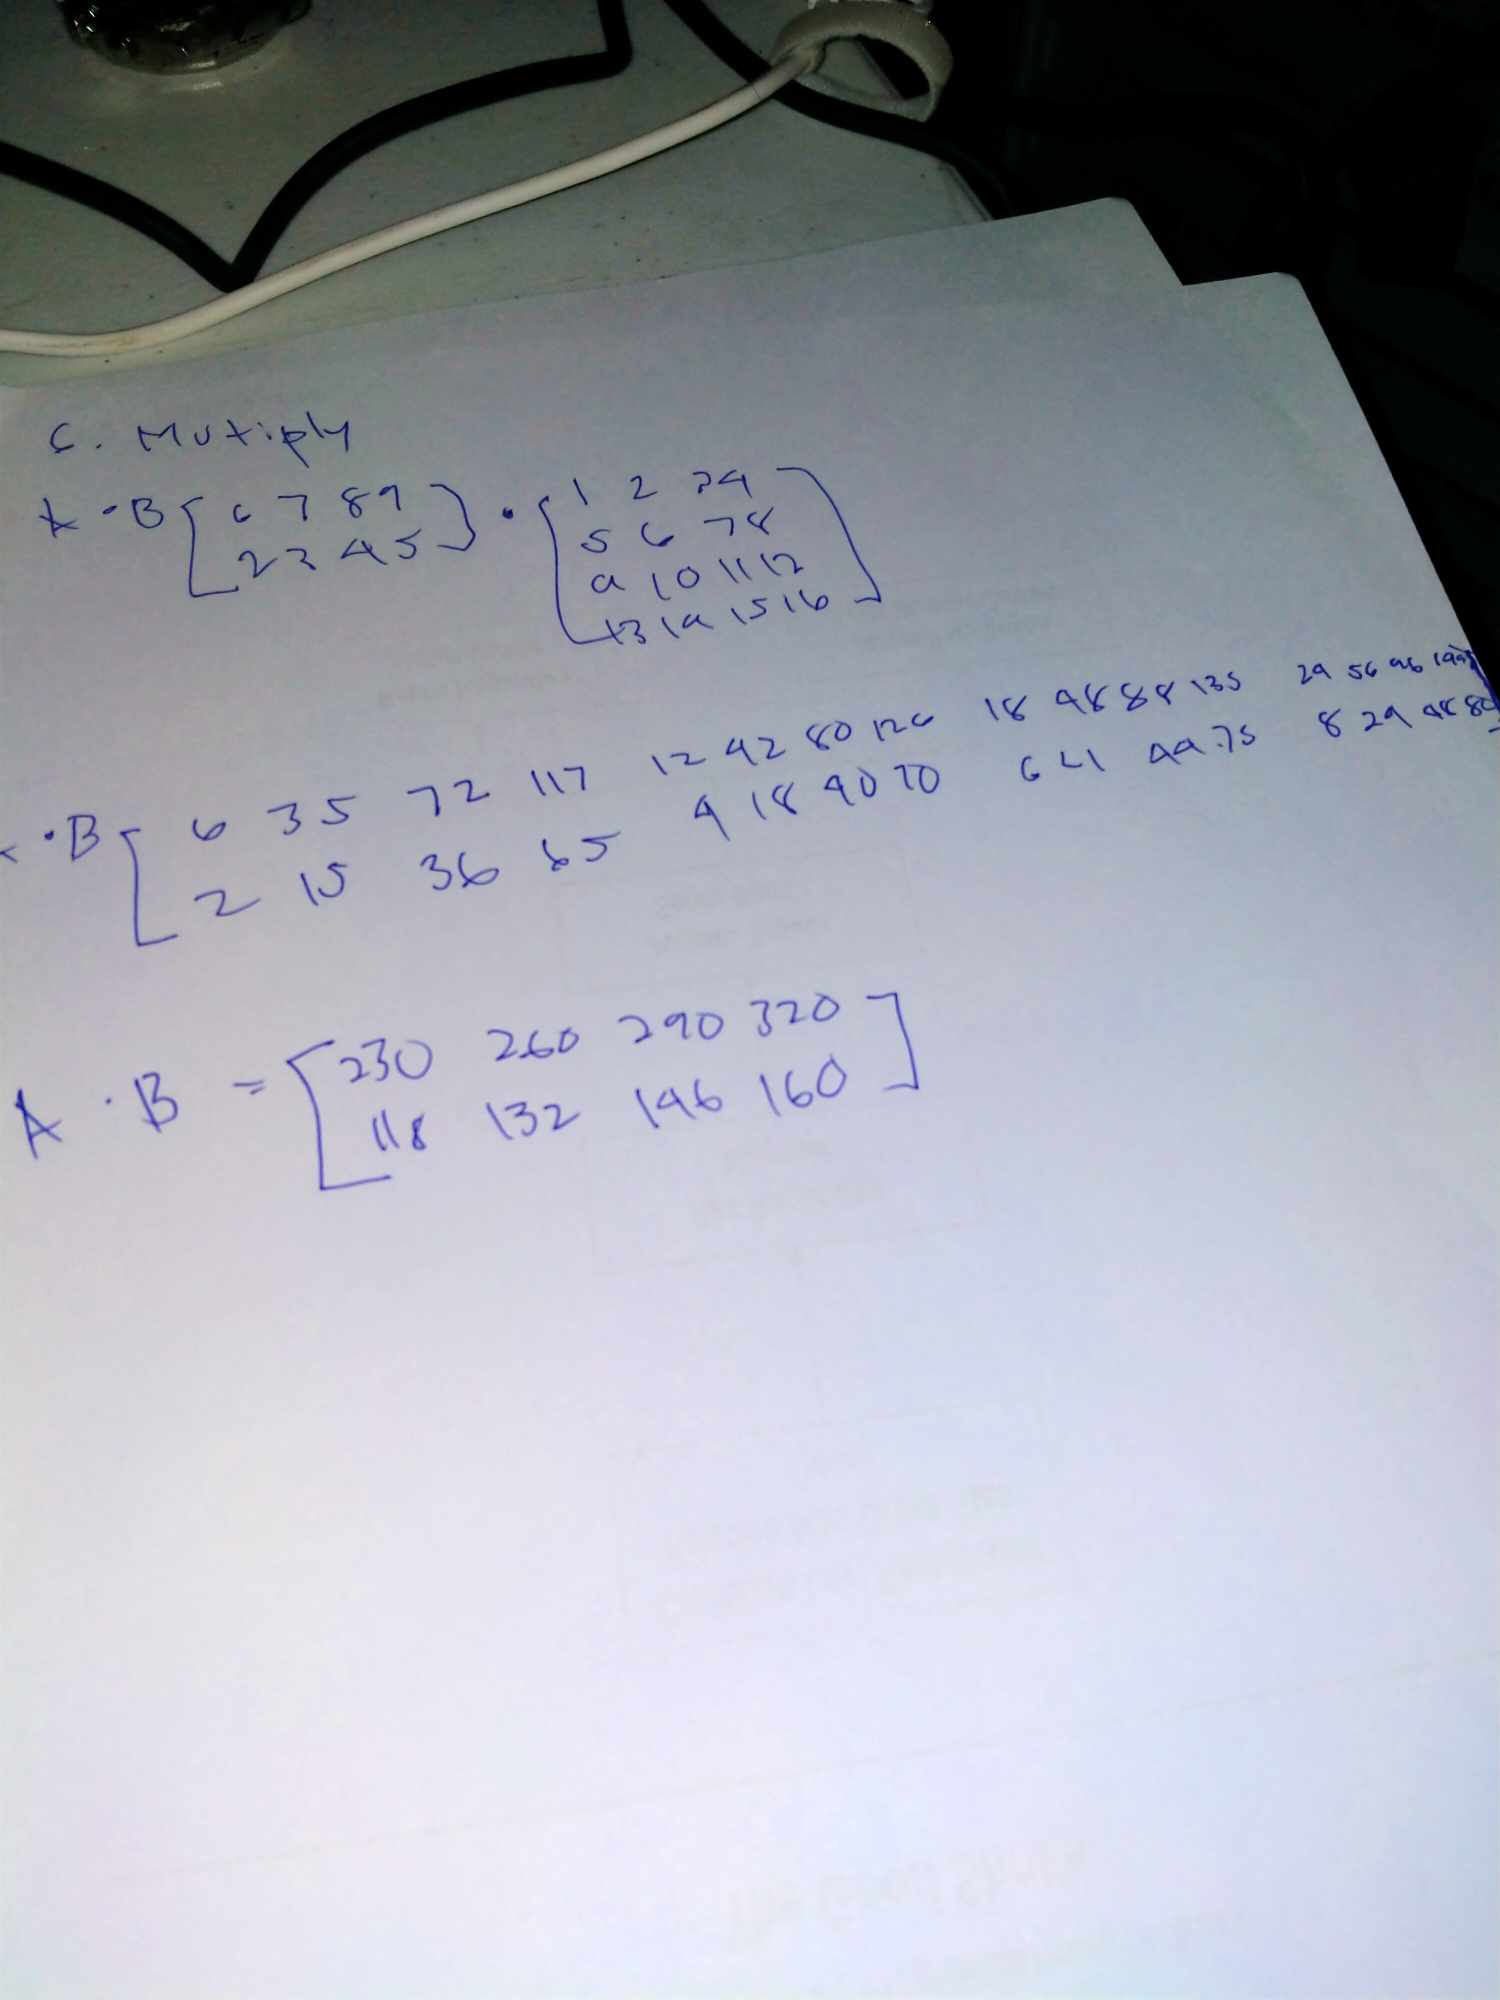 C. Mutiply
A · B [ 6 7 8 9 ] · [ 1 2 3 4 ]
2 3 4 5 5 6 7 8
9 10 11 12
13 14 15 16
· B [ 6 35 72 117 12 42 80 126 18 48 88 135 24 56 96 144
2 15 36 65 4 18 40 70 6 21 44 75 8 24 48 80
A · B = [ 230 260 290 320 ]
118 132 146 160